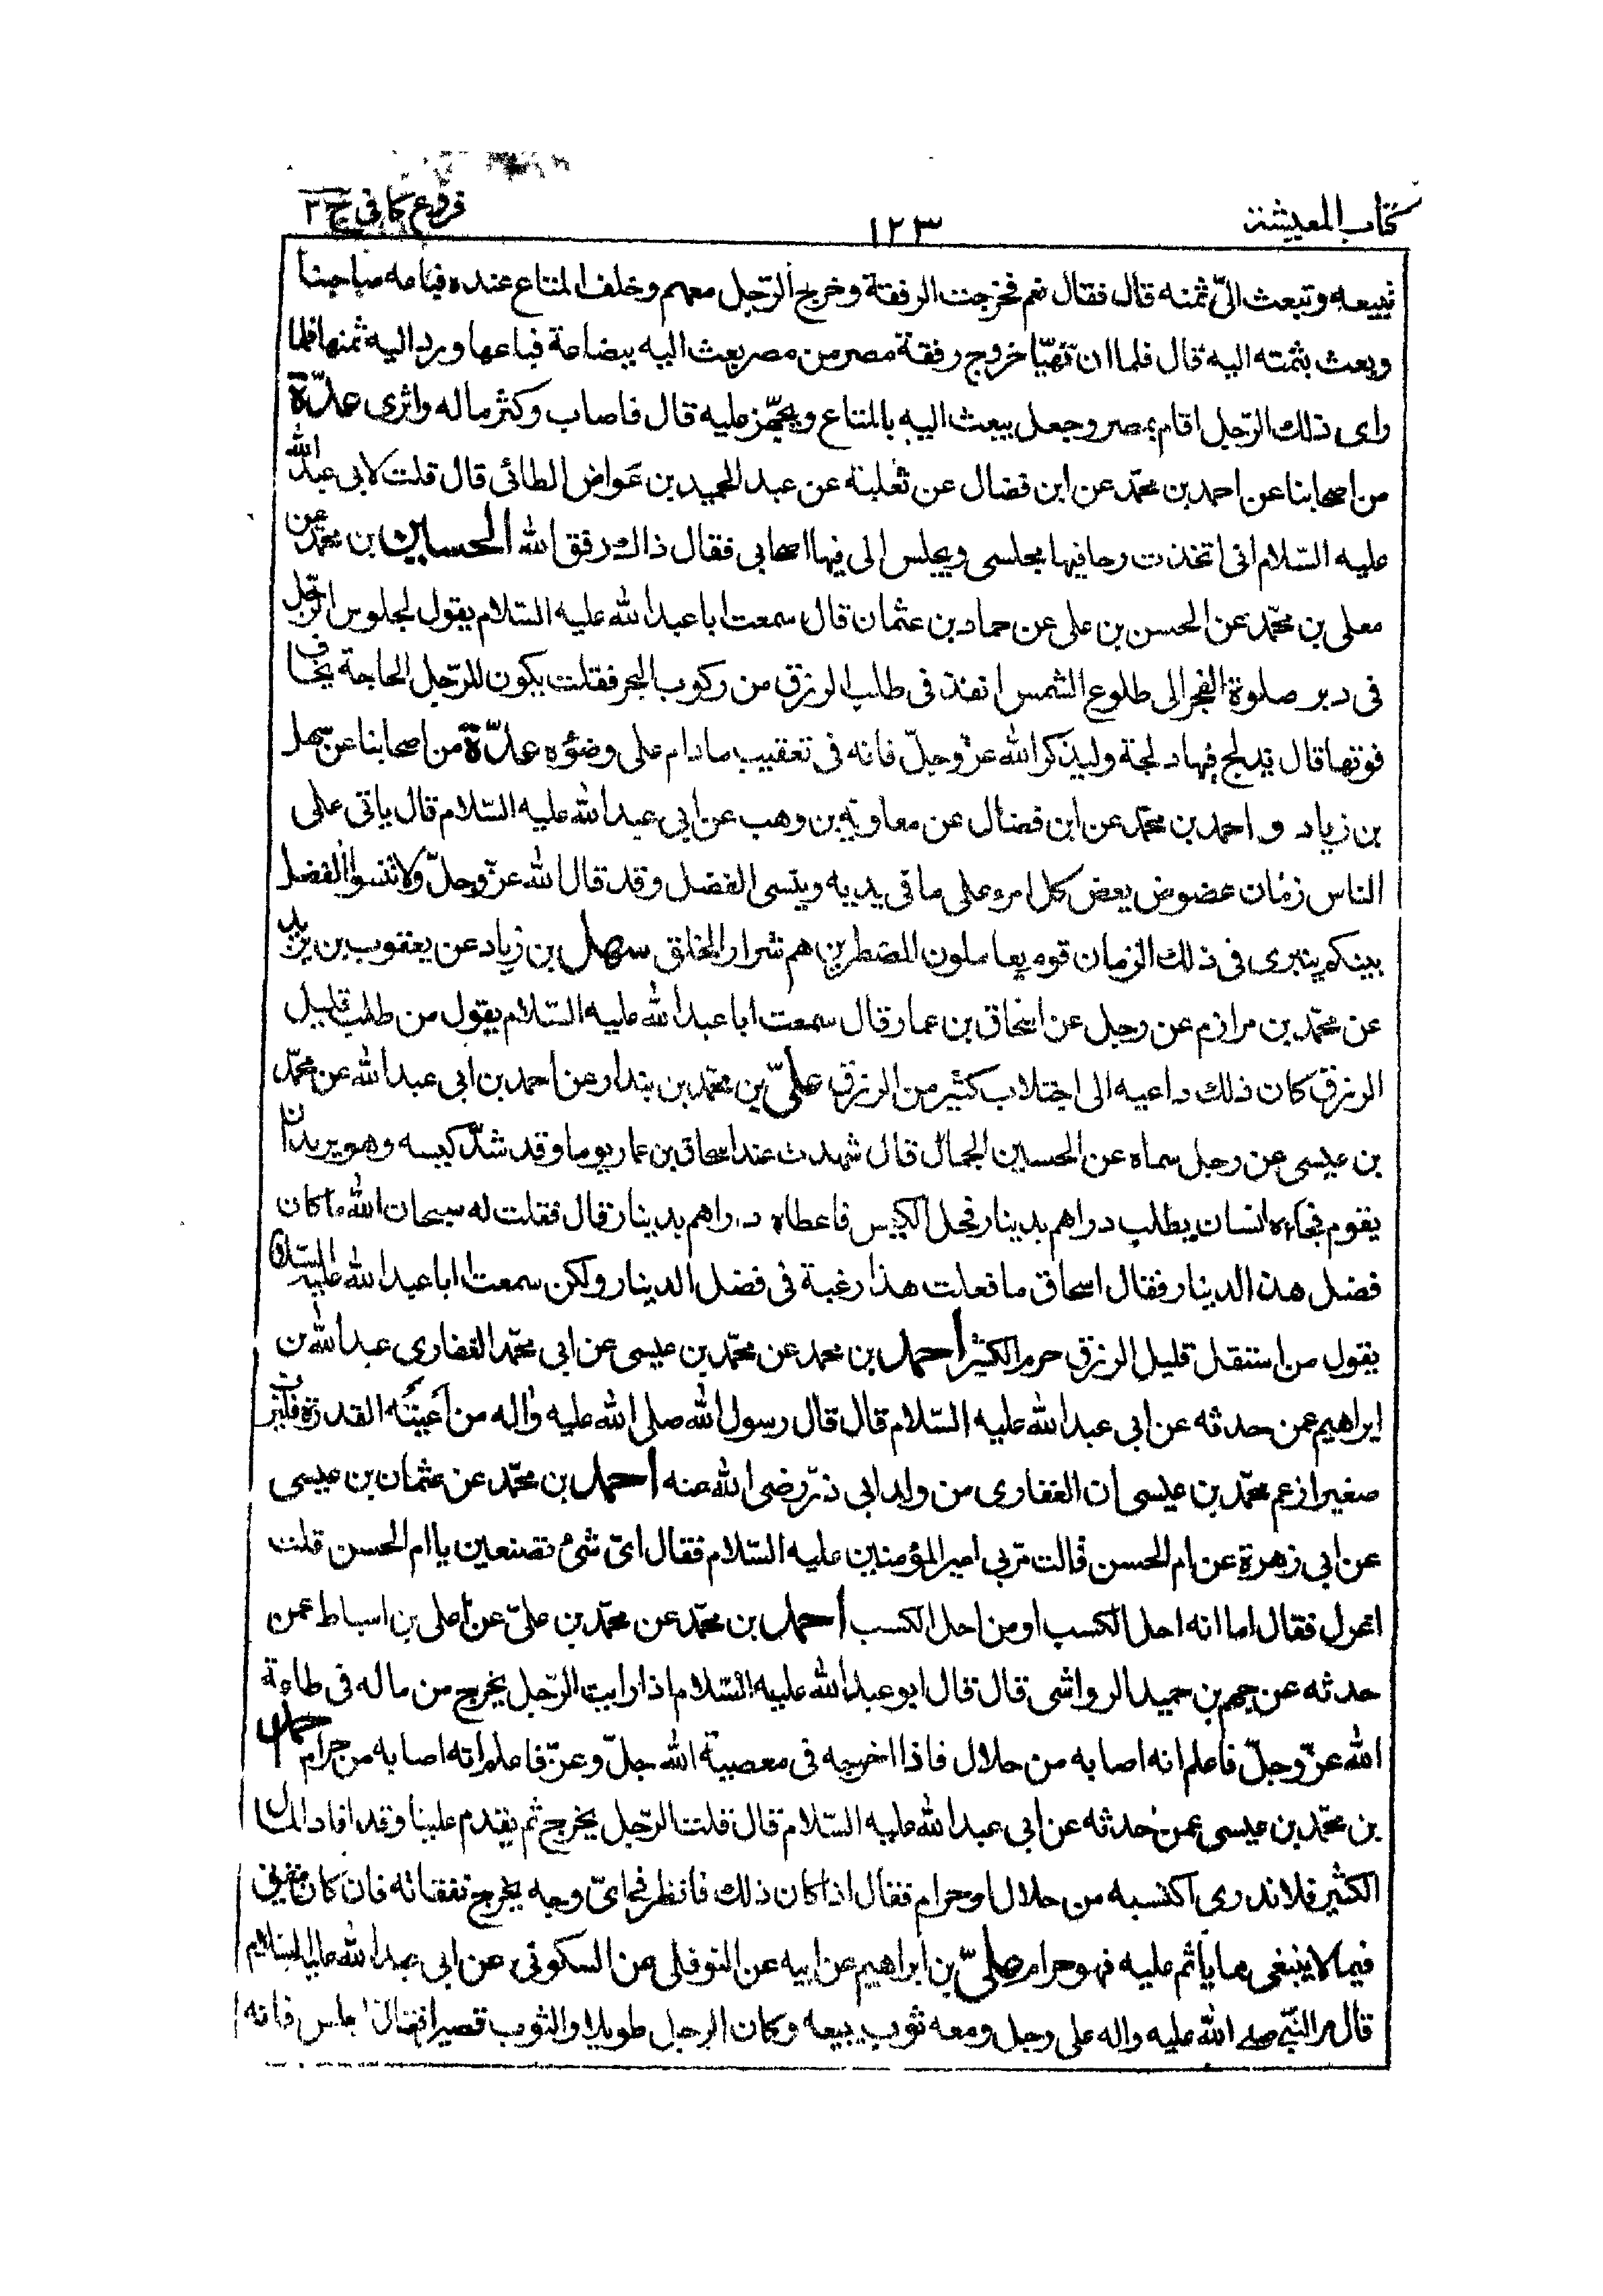 كتاب المعيشة
١٢٣
فروع كافى ج ٢
تبيعه وتبعث الىّ ثمنه قال فقال نعم فخرجت الرفقة وخرج الرّجل معهم وخلف المتاع عنده فباعه صاحبنا
وبعث بثمنه اليه قال فلما ان تهيّا خروج رفقة مصر من مصر بعث اليه ببضاعة فباعها ورد اليه ثمنها فلما
راى ذلك الرّجل اقام بمصر وجعل يبعث اليه بالمتاع ويجهّز عليه قال فاصاب وكثر ماله واثرى عدّة
من اصحابنا عن احمد بن محمّد عن ابن فضال عن ثعلبة عن عبد الحميد بن عواض الطائى قال قلت لابى عبد الله
عليه السّلام انى اتخذت رحا فيها مجلسى ويجلس الى فيها اصحابى فقال ذاك رفق الله الحسين بن محمّد عن
معلى بن محمّد عن الحسن بن على عن حماد بن عثمان قال سمعت ابا عبد الله عليه السّلام يقول لجلوس الرّجل
فى دبر صلوة الفجر الى طلوع الشمس انفذ فى طلب الرزق من ركوب البحر فقلت يكون للرّجل الحاجة يخاف
فوتها قال يدلج فيها دلجة وليذكر الله عزّ وجلّ فانه فى تعقيب مادام على وضوءه عدّة من اصحابنا عن سهل
بن زياد و احمد بن محمّد عن ابن فضال عن معاوية بن وهب عن ابى عبد الله عليه السّلام قال ياتى على
الناس زمان عضوض يعض كل امرء على ما فى يديه وينسى الفضل وقد قال الله عزّ وجلّ ولا تنسوا الفضل
بينكم ينبرى فى ذلك الزمان قوم يعاملون المضطرين هم شرار الخلق سهل بن زياد عن يعقوب بن يزيد
عن محمّد بن مرازم عن رجل عن اسحاق بن عمار قال سمعت ابا عبد الله عليه السّلام يقول من طلب قليل
الرزق كان ذلك داعيه الى اجتلاب كثير من الرزق علىّ بن محمّد بن بندار عن احمد بن ابى عبد الله عن محمّد
بن عيسى عن رجل سماه عن الحسين الجمال قال شهدت عند اسحاق بن عمار يوما وقد شدّ كيسه وهو يريد ان
يقوم فجاءه انسان يطلب دراهم بدينار فحل الكيس فاعطاه دراهم بدينار قال فقلت له سبحان الله ما كان
فضل هذا الدينار فقال اسحاق ما فعلت هذا رغبة فى فضل الدينار ولكن سمعت ابا عبد الله عليه السّلام
يقول من استقل قليل الرزق حرم الكثير احمد بن محمد عن محمّد بن عيسى عن ابى محمّد الغفارى عبد الله بن
ابراهيم عمن حدثه عن ابى عبد الله عليه السّلام قال قال رسول الله صلى الله عليه واله من أعيته القدرة فليرب
صغيرا زعم محمّد بن عيسى ان الغفارى من ولد ابى ذرّ رضى الله عنه احمد بن محمّد عن عثمان بن عيسى
عن ابى زهرة عن ام الحسن قالت مرّ بى امير المؤمنين عليه السّلام فقال اىّ شئ تصنعين يا ام الحسن قلت
اغزل فقال اما انه احل الكسب او من احل الكسب احمد بن محمّد عن محمّد بن علىّ عن على بن اسباط عمن
حدثه عن جهم بن حميد الرواشى قال قال ابو عبد الله عليه السّلام اذا رايت الرّجل يخرج من ماله فى طاعة
الله عزّ وجلّ فاعلم انه اصابه من حلال فاذا اخرجه فى معصية الله جلّ وعزّ فاعلم انه اصابه من حرام احمد
بن محمّد بن عيسى عمن حدثه عن ابى عبد الله عليه السّلام قال قلت الرّجل يخرج ثم يقدم علينا وقد افاد المال
الكثير فلا ندرى اكتسبه من حلال او حرام فقال اذا كان ذلك فانظر فى اىّ وجه يخرج نفقاته فان كان
فيما لا ينبغى مما يأثم عليه فهو حرام علىّ بن ابراهيم عن ابيه عن النوفلى عن السكونى عن ابى عبد الله عليه السلام
قال مر النبىّ صلى الله عليه واله على رجل ومعه ثوب يبيعه وكان الرجل طويلا والثوب قصيرا فقال اجلس فانه